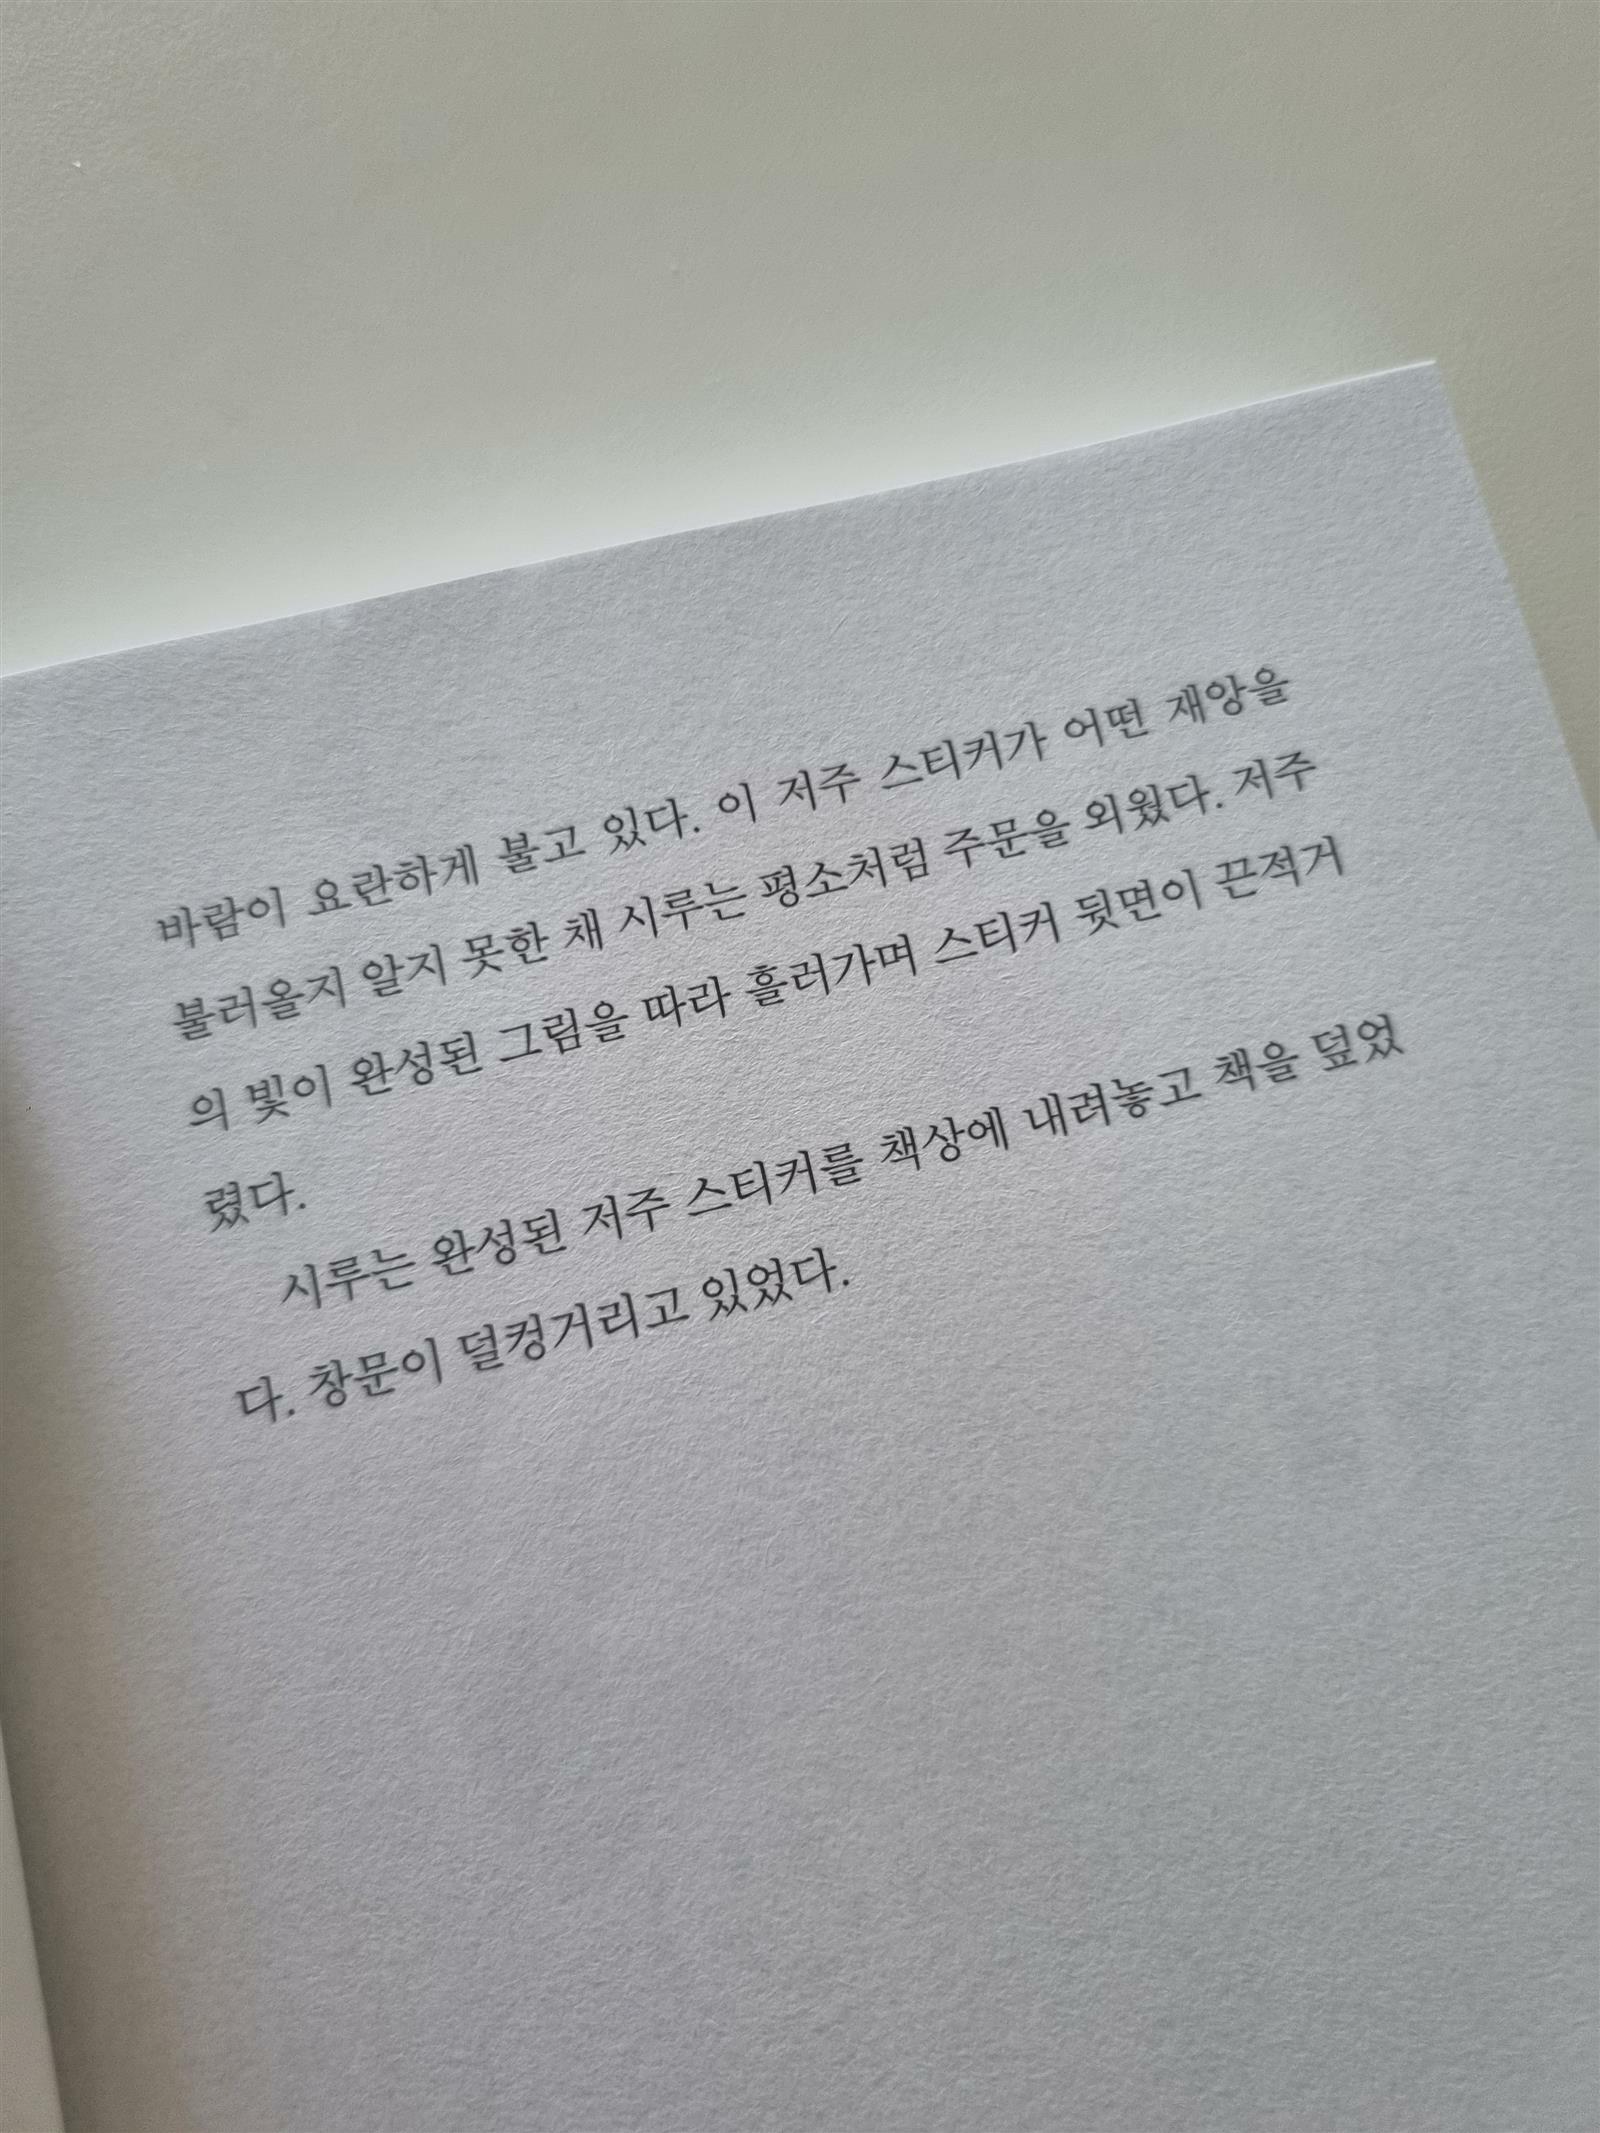 바람이 요란하게 불고 있다. 이 저주 스티커가 어떤 재앙을
불러올지 알지 못한 채 시루는 평소처럼 주문을 외웠다. 저주
의 빛이 완성된 그림을 따라 흘러가며 스티커 뒷면이 끈적거
렸다.
시루는 완성된 저주 스티커를 책상에 내려놓고 책을 덮었
다. 창문이 덜컹거리고 있었다.